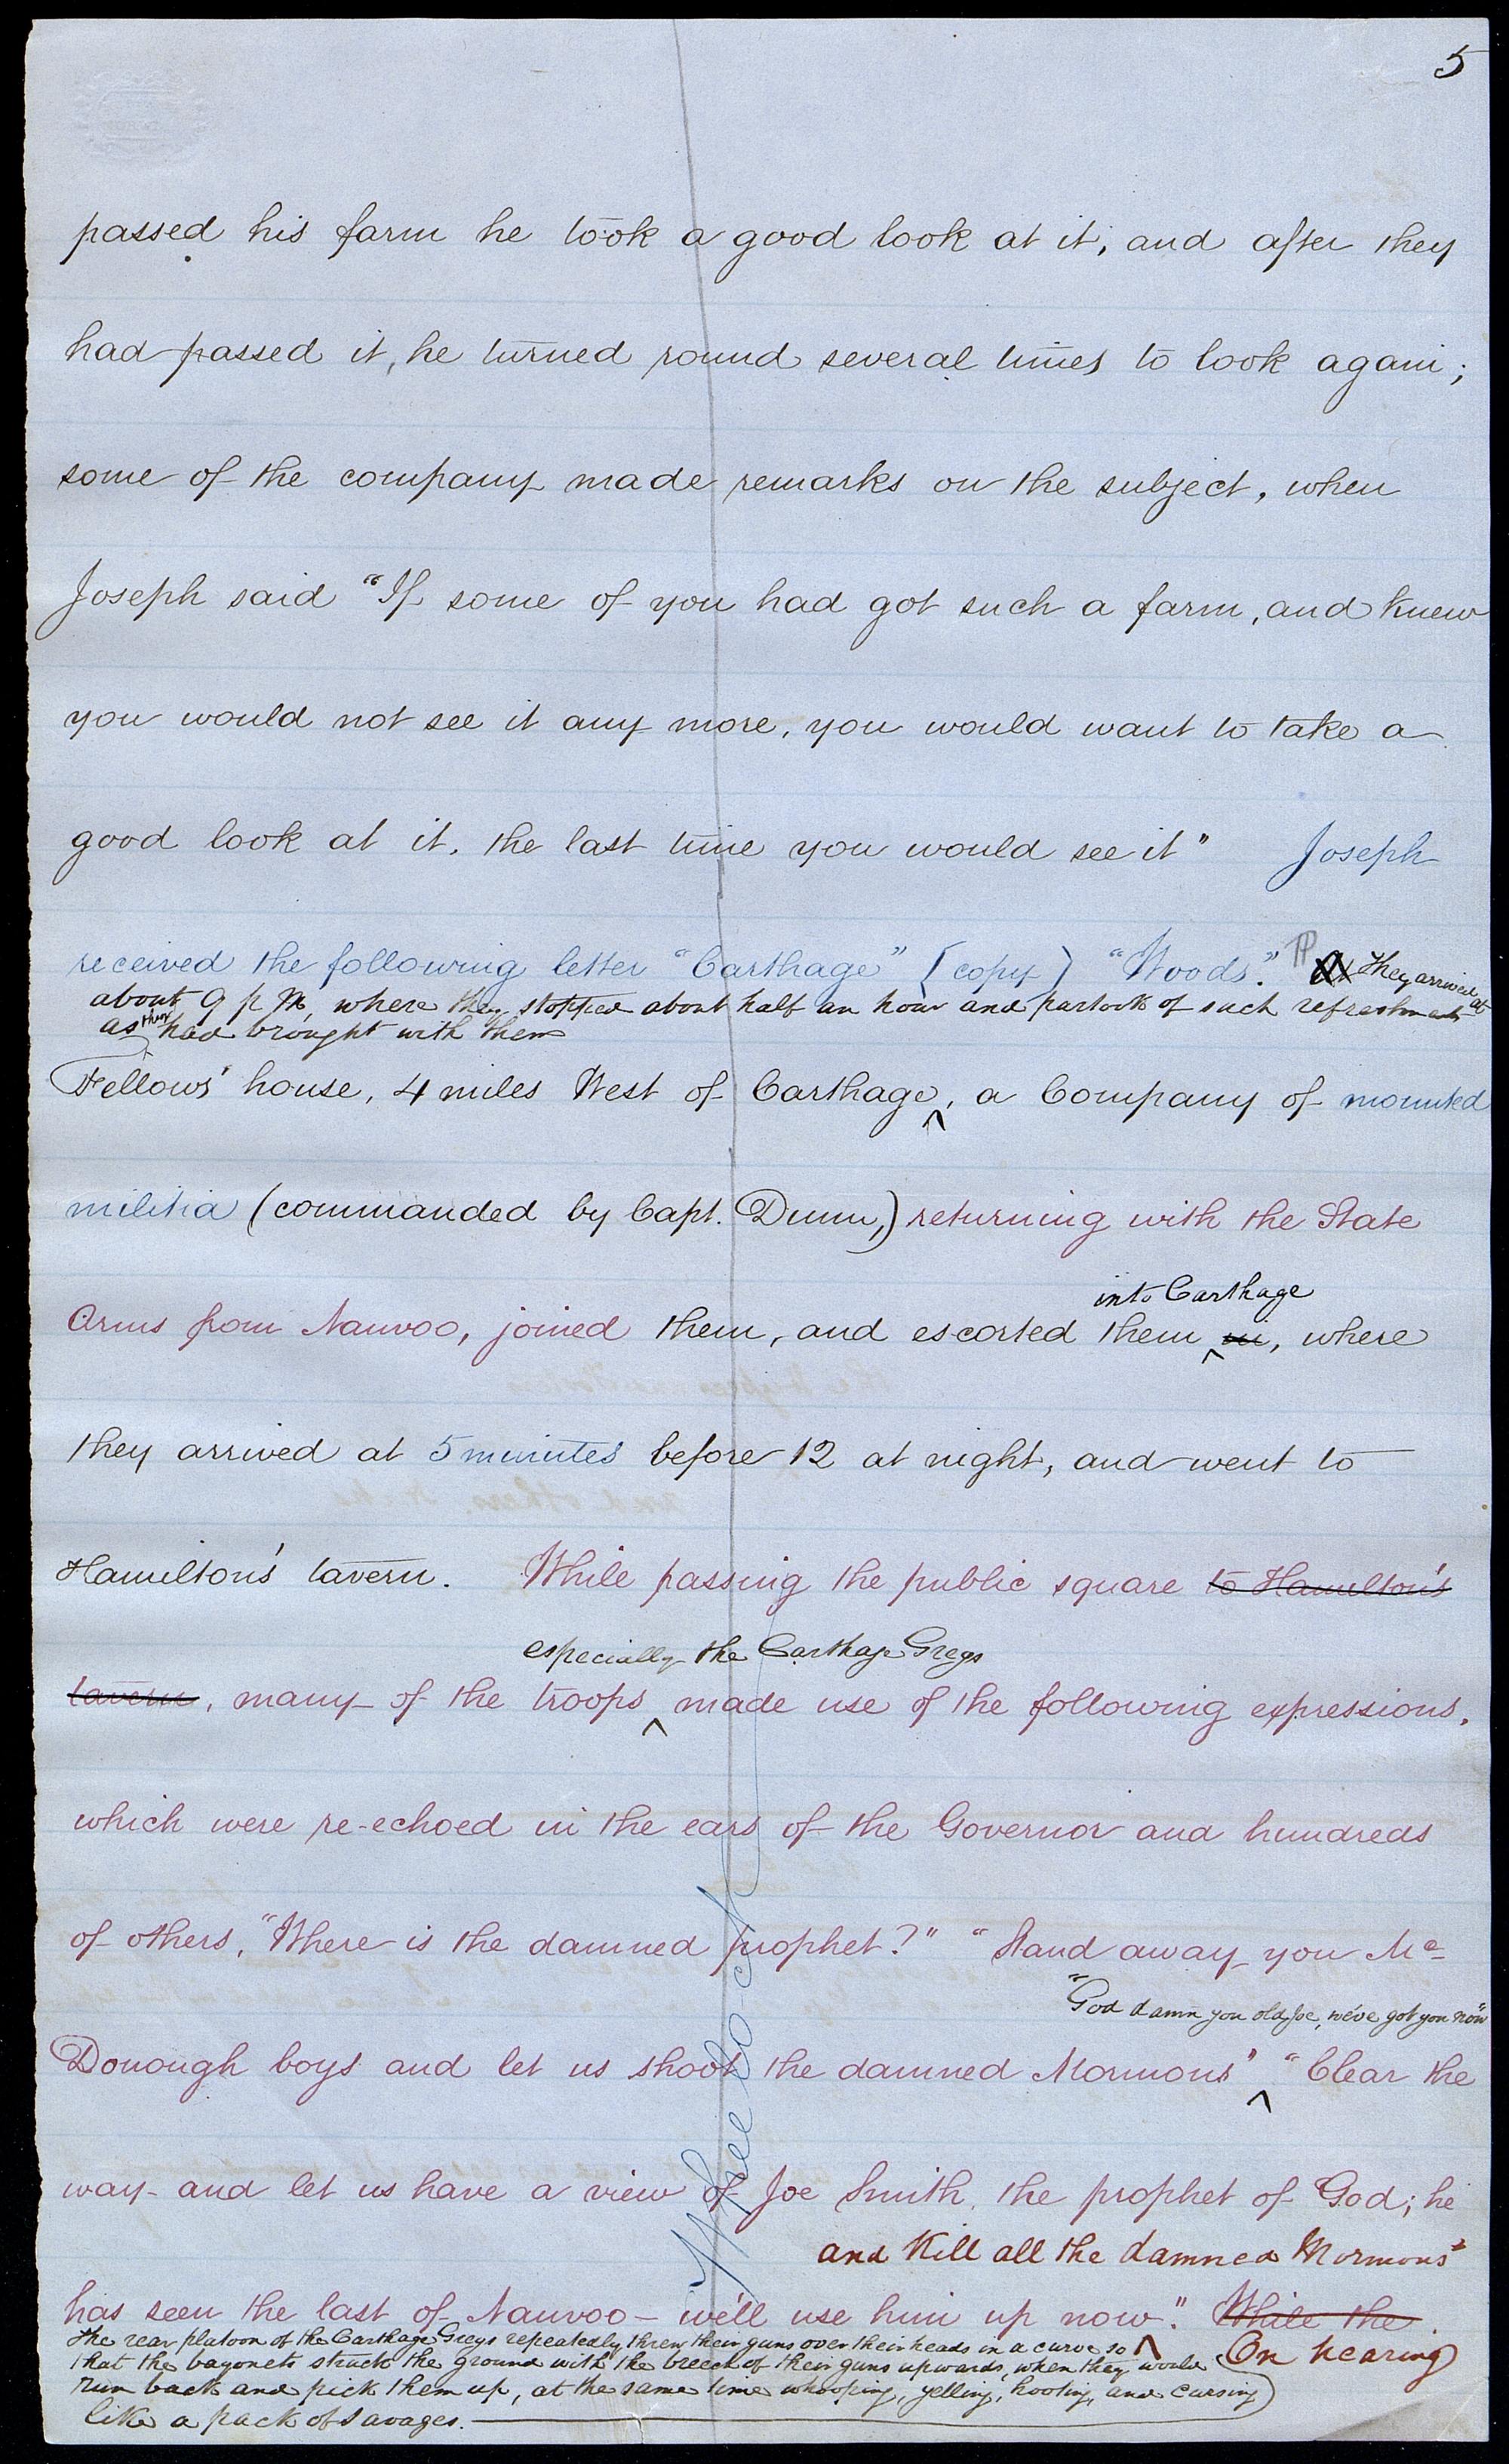 5
passed his farm he took a good look at it, and after they
had passed it, he turned round several times to look again;
some of the company made remarks on the subject, when
Joseph said "If some of you had got such a farm, and knew
you would not see it any more, you would want to take a
good look at it, the last time you would see it" Joseph
received the following letter "Carthage" [copy] "Woods." They arrived at
about 9 p M, where they stopped about half an hour and partook of such refreshments
as they had brought with them
Fellows' house, 4 miles West of Carthage, a Company of mounted
militia (commanded by Capt. Dunn,) returning with the State
Arms from Nauvoo, joined them, and escorted them in, where
into Carthage
they arrived at 5 minutes before 12 at night, and went to
Hamilton's tavern. While passing the public square to Hamilton's
especially the Carthage Greys
tavern, many of the troops made use of the following expressions,
which were re-echoed in the ears of the Governor and hundreds
of others, "Where is the damned prophet?" "Stand away you Mc
"God damn you old Joe, we've got you now"
Donough boys and let us shoot the damned Mormons" "Clear the
way and let us have a view of Joe Smith, the prophet of God; he
and Kill all the damned Mormons"
has seen the last of Nauvoo - we'll use him up now". While the
On hearing
The rear platoon of the Carthage Greys repeatedly threw their guns over their heads in a curve so
that the bayonets struck the ground with the breech of their guns upwards, when they would
run back and pick them up, at the same time whooping, yelling, hooting, and cursing
like a pack of savages.